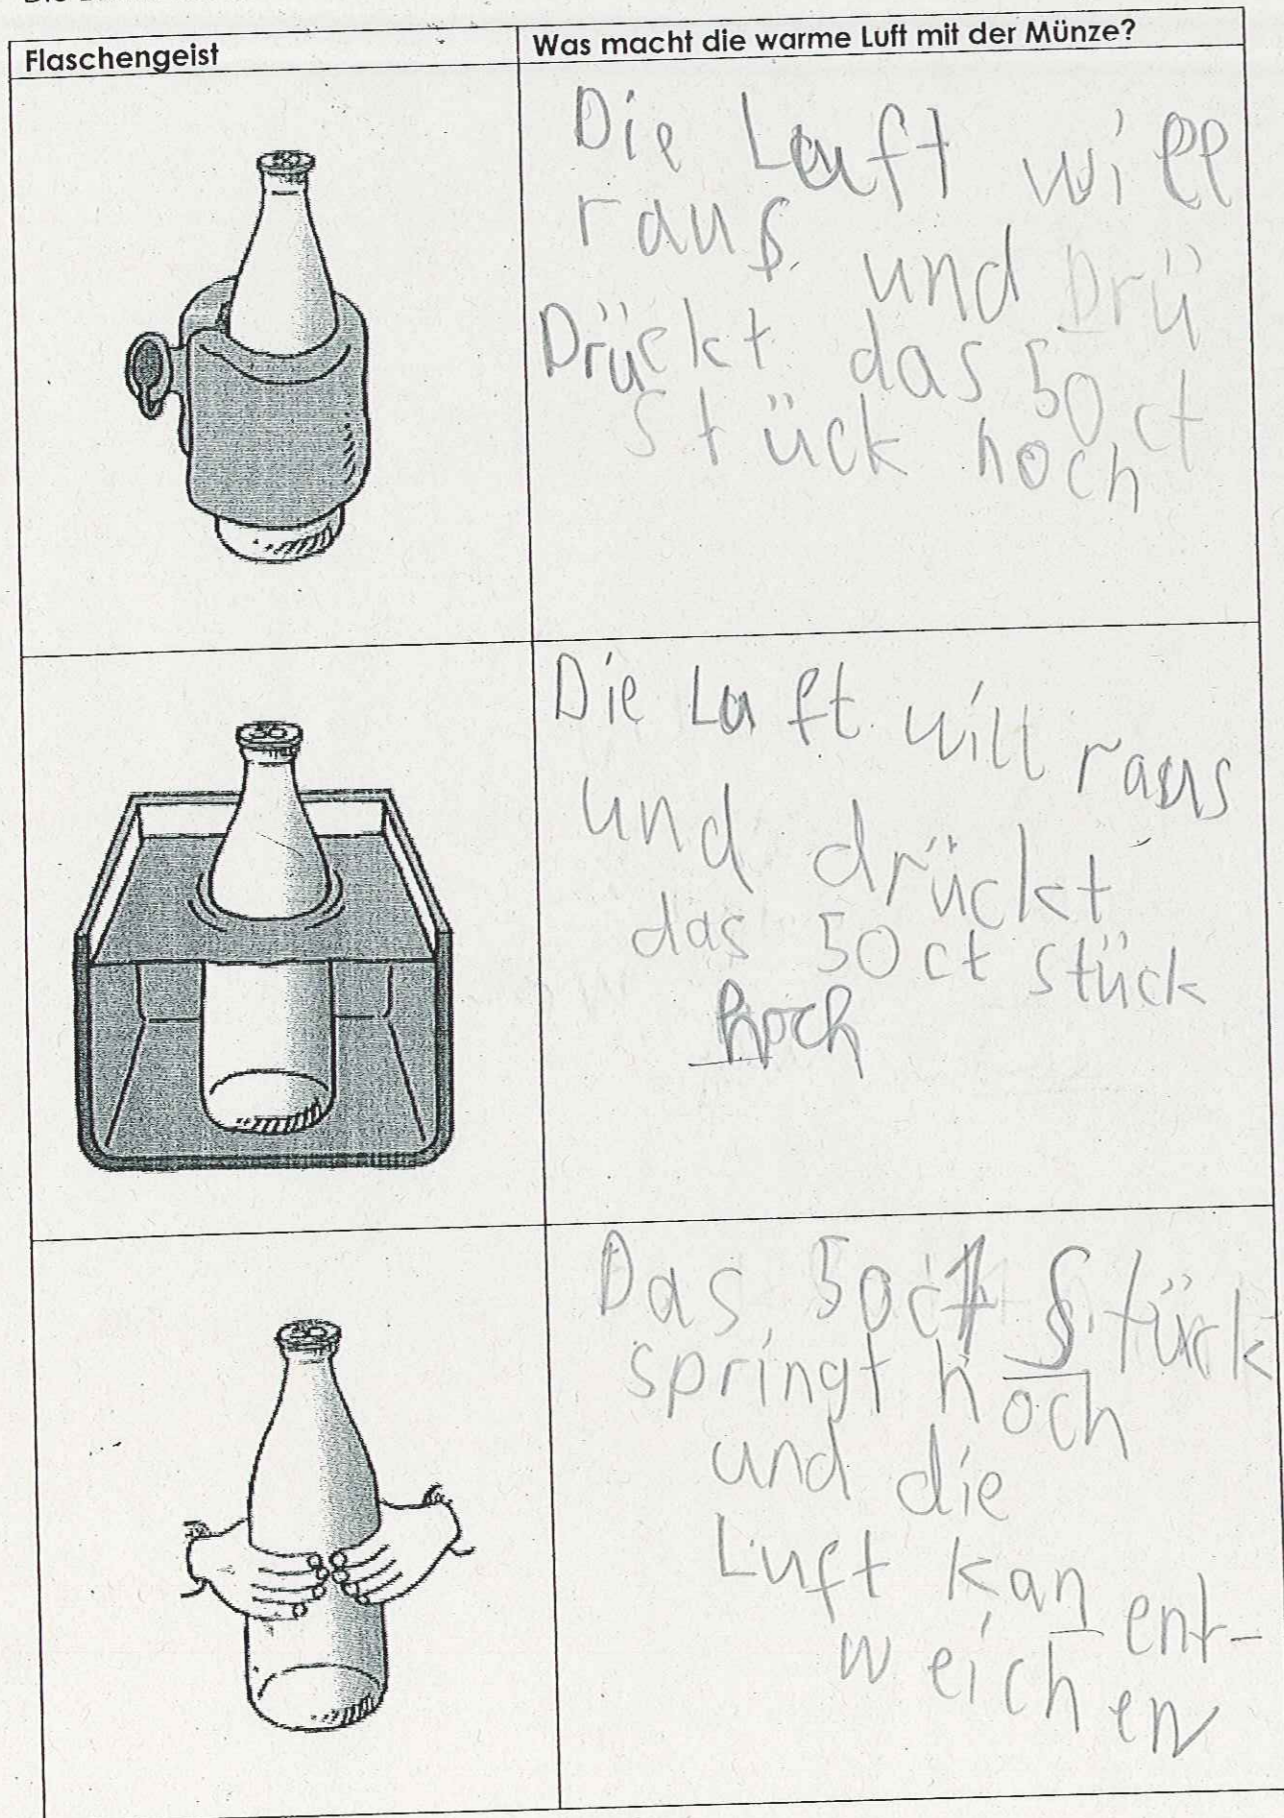 Flaschengeist
Was macht die warme Luft mit der Münze?
Die Lauft will
raus und Drü
Drückt das 50 ct
stück hoch
Die Luft will raus
und drückt
das 50 ct stück
hoch
Das 50 ct Stück
springt hoch
und die
Luft kan ent-
weichen